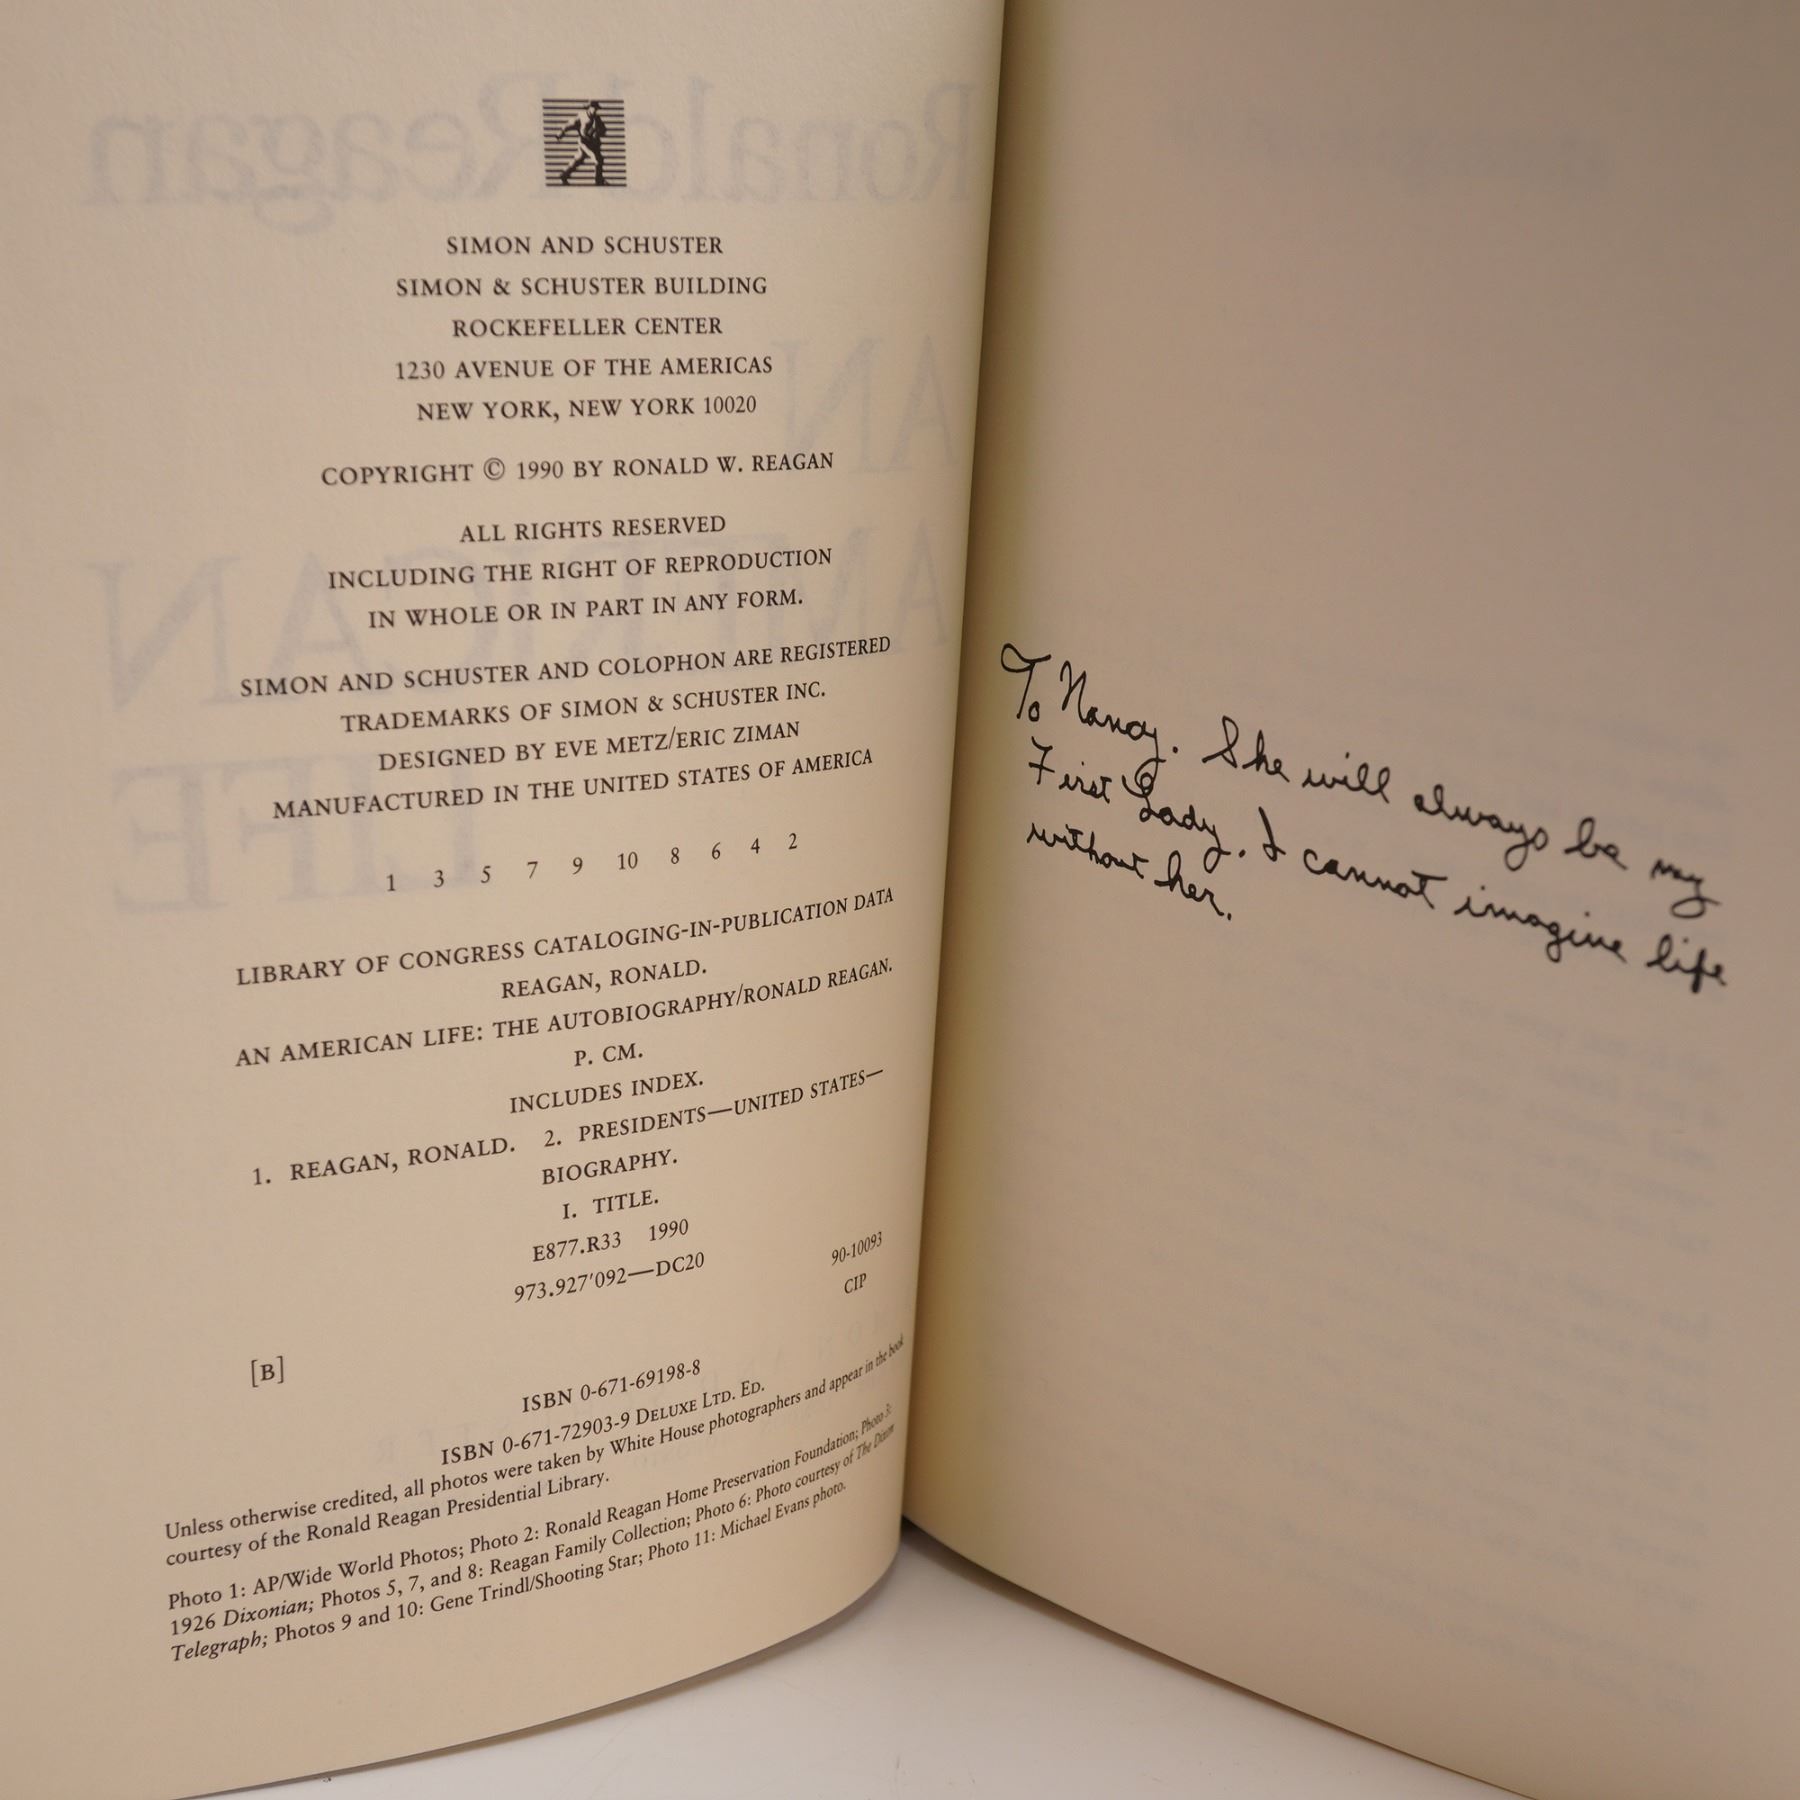 SIMON AND SCHUSTER
SIMON & SCHUSTER BUILDING
ROCKEFELLER CENTER
1230 AVENUE OF THE AMERICAS
NEW YORK, NEW YORK 10020
COPYRIGHT © 1990 BY RONALD W. REAGAN
ALL RIGHTS RESERVED
INCLUDING THE RIGHT OF REPRODUCTION
IN WHOLE OR IN PART IN ANY FORM.
SIMON AND SCHUSTER AND COLOPHON ARE REGISTERED
TRADEMARKS OF SIMON & SCHUSTER INC.
DESIGNED BY EVE METZ/ERIC ZIMAN
MANUFACTURED IN THE UNITED STATES OF AMERICA
1 3 5 7 9 10 8 6 4 2
LIBRARY OF CONGRESS CATALOGING-IN-PUBLICATION DATA
REAGAN, RONALD.
AN AMERICAN LIFE: THE AUTOBIOGRAPHY/RONALD REAGAN.
P. CM.
INCLUDES INDEX.
1. REAGAN, RONALD. 2. PRESIDENTS—UNITED STATES—
BIOGRAPHY.
I. TITLE.
E877.R33 1990
973.927'092—DC20 90-10093
CIP
[B]
ISBN 0-671-69198-8
ISBN 0-671-72903-9 DELUXE LTD. ED.
Unless otherwise credited, all photos were taken by White House photographers and appear in the book
courtesy of the Ronald Reagan Presidential Library.
Photo 1: AP/Wide World Photos; Photo 2: Ronald Reagan Home Preservation Foundation; Photo 3:
1926 Dixonian; Photos 5, 7, and 8: Reagan Family Collection; Photo 6: Photo courtesy of The Dixon
Telegraph; Photos 9 and 10: Gene Trindl/Shooting Star; Photo 11: Michael Evans photo.
To Nancy. She will always be my
First Lady. I cannot imagine life
without her.